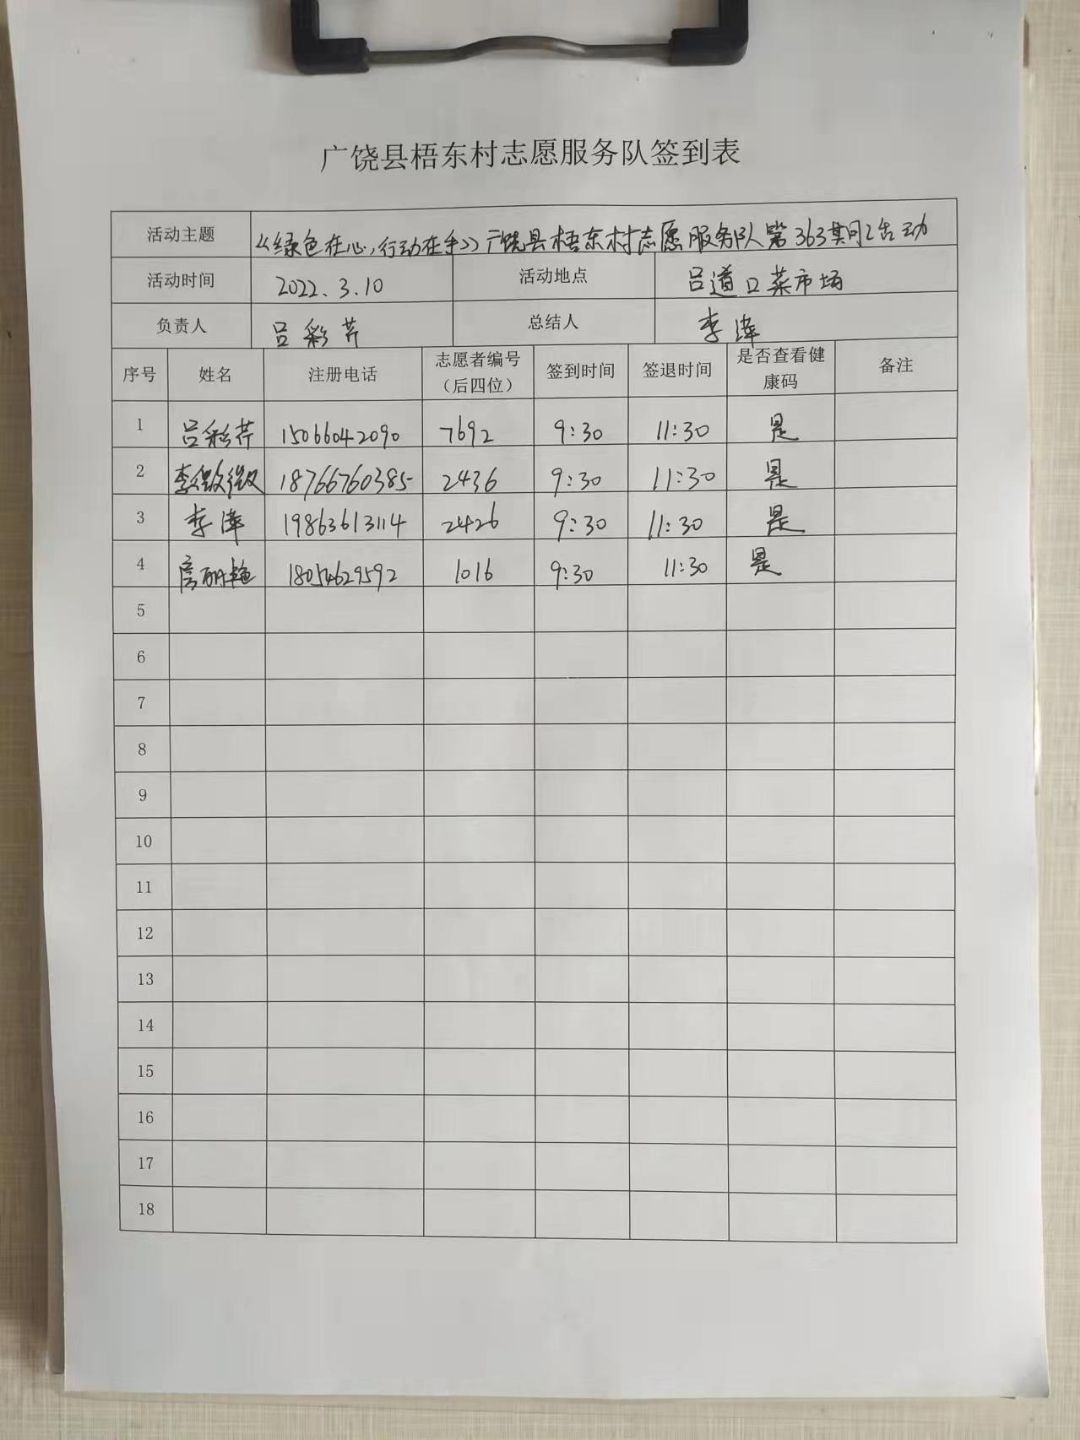 广饶县梧东村志愿服务队签到表
活动主题 《绿色在心,行动在手》广饶县梧东村志愿服务队第363期活动
活动时间 2022.3.10 活动地点 吕道口菜市场
负责人 吕彩芹 总结人 李泽
序号 姓名 注册电话 志愿者编号（后四位） 签到时间 签退时间 是否查看健康码 备注
1 吕彩芹 15066042090 7692 9:30 11:30 是
2 李微微 18766760385 2436 9:30 11:30 是
3 李泽 19863613114 2426 9:30 11:30 是
4 18054629592 1016 9:30 11:30 是
5
6
7
8
9
10
11
12
13
14
15
16
17
18